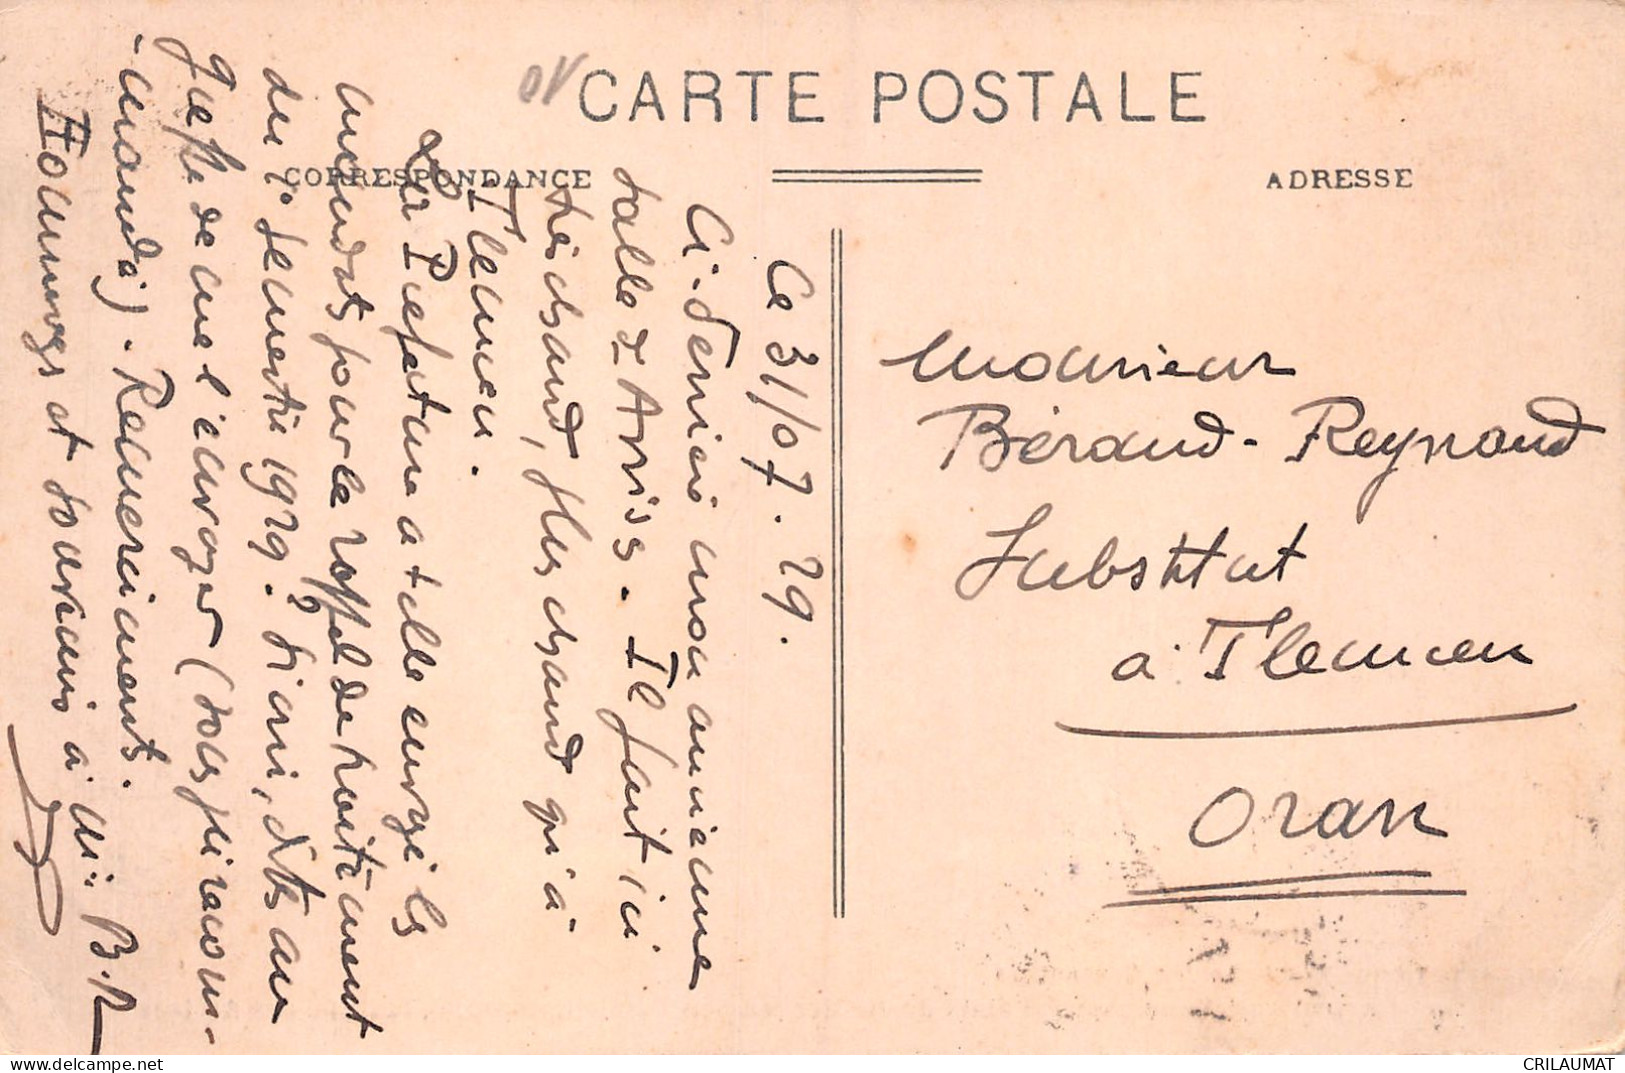 CARTE POSTALE
CORRESPONDANCE
ADRESSE
Ce 31/07.29.
Ci-dernier mon ancienne
salle d'Arriss. Il fait ici
très chaud, plus chaud qu'à
Tlemcen.
La Préfecture a-t-elle envoyé les
mandats pour le rappel de traitement
du 1° semestre 1929? Si oui, dites au
greffe de me l'envoyer (sous pli recom-
-mandé). Remerciements.
Hommages et souvenirs à M. B.R
Monsieur
Béraud-Reynaud
Substitut
à Tlemcen
Oran
delcampe.net
CRILAUMAT